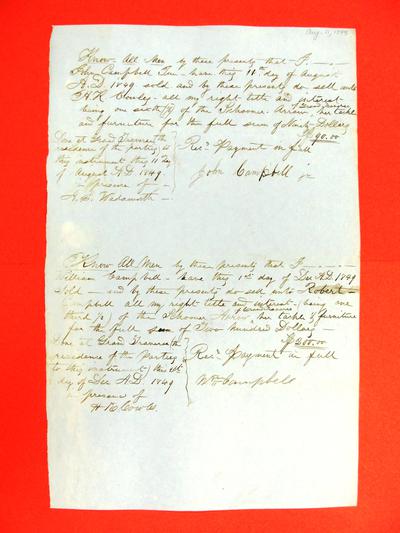 Aug. 11, 1849
Know All Men by these presents that I
John Campbell Jun - have this 11th day of August
A.D. 1849 sold and by these presents do sell unto
H.K. Cowles all my right title and interest
of Grand Traverse
being one sixth of the Schooner Arrow her tackle
and furniture for the full sum of Dollars
$90.00
Done at Grand Traverse the
residence of the parties to
this instrument this 11 day
of August A.D. 1849
in presence of
Wadsworth
Rec. Payment in full
John Campbell jr
Know All Men by these presents that I
William Campbell - have this 1st day of Dec A.D. 1849
sold and by these presents do sell unto Robert
Campbell all my right title and interest being one
of Grand Traverse
third of the Schooner Arrow her tackle & furniture
for the full sum of Two hundred Dollars
$200.00
Done at Grand Traverse the
residence of the Parties
to this instrument this 1st
day of Dec A.D. 1849
in presence of
H K Cowles
Rec. Payment in full
Wm Campbell